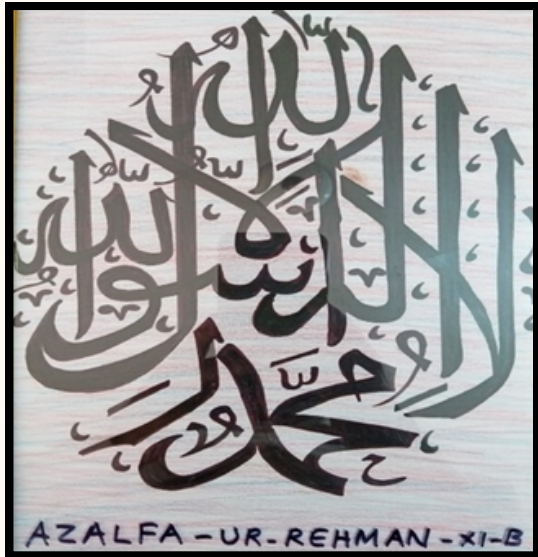 لا إله إلا الله محمد رسول الله
AZALFA-UR-REHMAN-XI-B